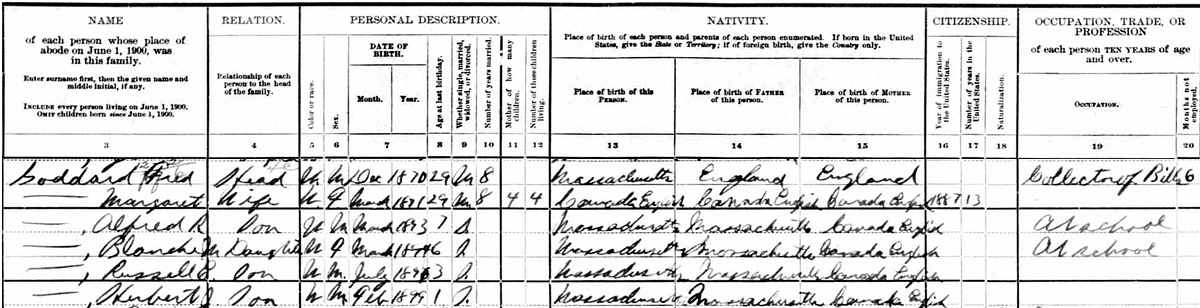 NAME RELATION. PERSONAL DESCRIPTION. NATIVITY. CITIZENSHIP. OCCUPATION, TRADE, OR PROFESSION
of each person whose place of abode on June 1, 1900, was in this family.
Enter surname first, then the given name and middle initial, if any.
INCLUDE every person living on June 1, 1900.
OMIT children born since June 1, 1900.
Relationship of each person to the head of the family.
Color or race.
Sex.
DATE OF BIRTH.
Month. Year.
Age at last birthday.
Whether single, married, widowed, or divorced.
Number of years married.
Mother of how many children.
Number of these children living.
Place of birth of each person and parents of each person enumerated. If born in the United States, give the State or Territory; if of foreign birth, give the Country only.
Place of birth of this PERSON.
Place of birth of FATHER of this person.
Place of birth of MOTHER of this person.
Year of immigration to the United States.
Number of years in the United States.
Naturalization.
of each person TEN YEARS of age and over.
OCCUPATION.
Months not employed.
3 4 5 6 7 8 9 10 11 12 13 14 15 16 17 18 19 20
Goddard Fred Head W M Dec 1870 29 M 8 Massachusetts England England Collector of Bills 6
— Margaret Wife W F March 1871 29 M 8 4 4 Canada English Canada English Canada English 1887 13
—, Alfred R Son W M March 1893 7 S Massachusetts Massachusetts Canada English At school
—, Blanche M Daughter W F March 6 S Massachusetts Massachusetts Canada English At school
—, Russell E Son W M July 3 S Massachusetts Massachusetts Canada English
—, Herbert J. Son W M Feb 1899 1 S Massachusetts Massachusetts Canada English